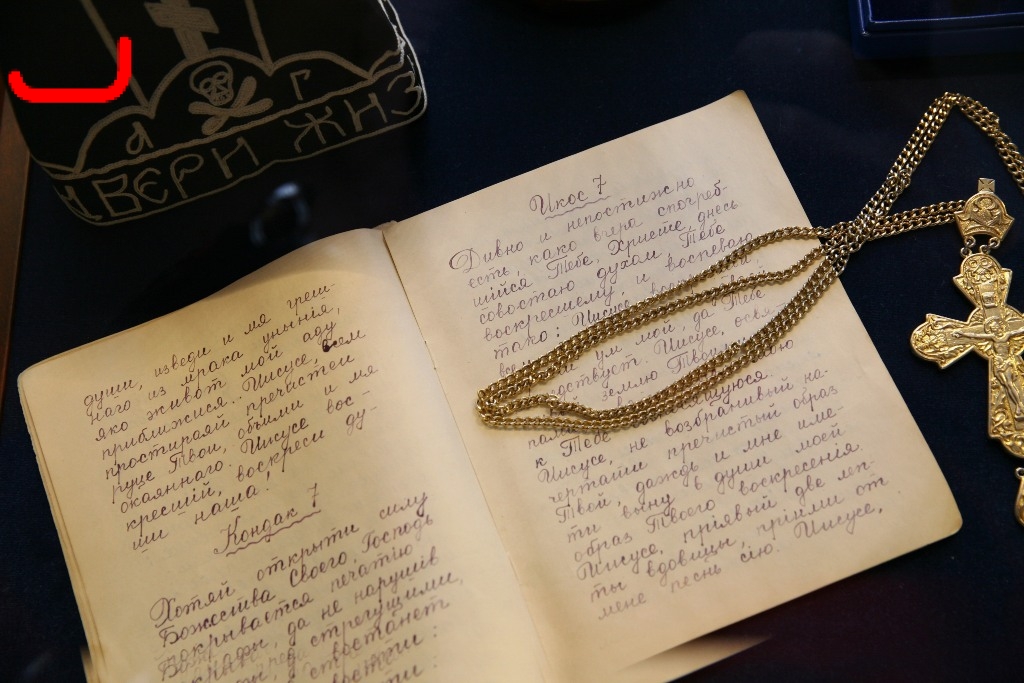 а г
ВЕРН ЖНЗ
души, изведи и мя греш-
наго из мрака унынія,
яко живот мой аду
приближися. Иисусе, всем
простираяй пречистеи
руце Твои, объими и мя
окаяннаго. Иисусе вос-
кресшій, воскреси ду-
ши наша!
Кондак 7
Хотяй открыти силу
Божества Своего, Господь
покрывается печатію
да не нарушив
стрегущими,
Икос 7
Дивно и непостижно
есть, како вчера спогреб-
шійся Тебе, Христе, днесь
совостаю духом Тебе
воскресшему, и воспеваю
тако: Иисусе
ум мой, да Тебе
Иисусе, освя
землю Твоим
к Тебе
Иисусе, не возбранивый на-
чертати пречистый образ
Твой, даждь и мне име-
ти выну в души моей
образ Твоего воскресенія.
Иисусе, пріявый две леп-
ты вдовицы, пріими от
мене песнь сію. Иисусе,